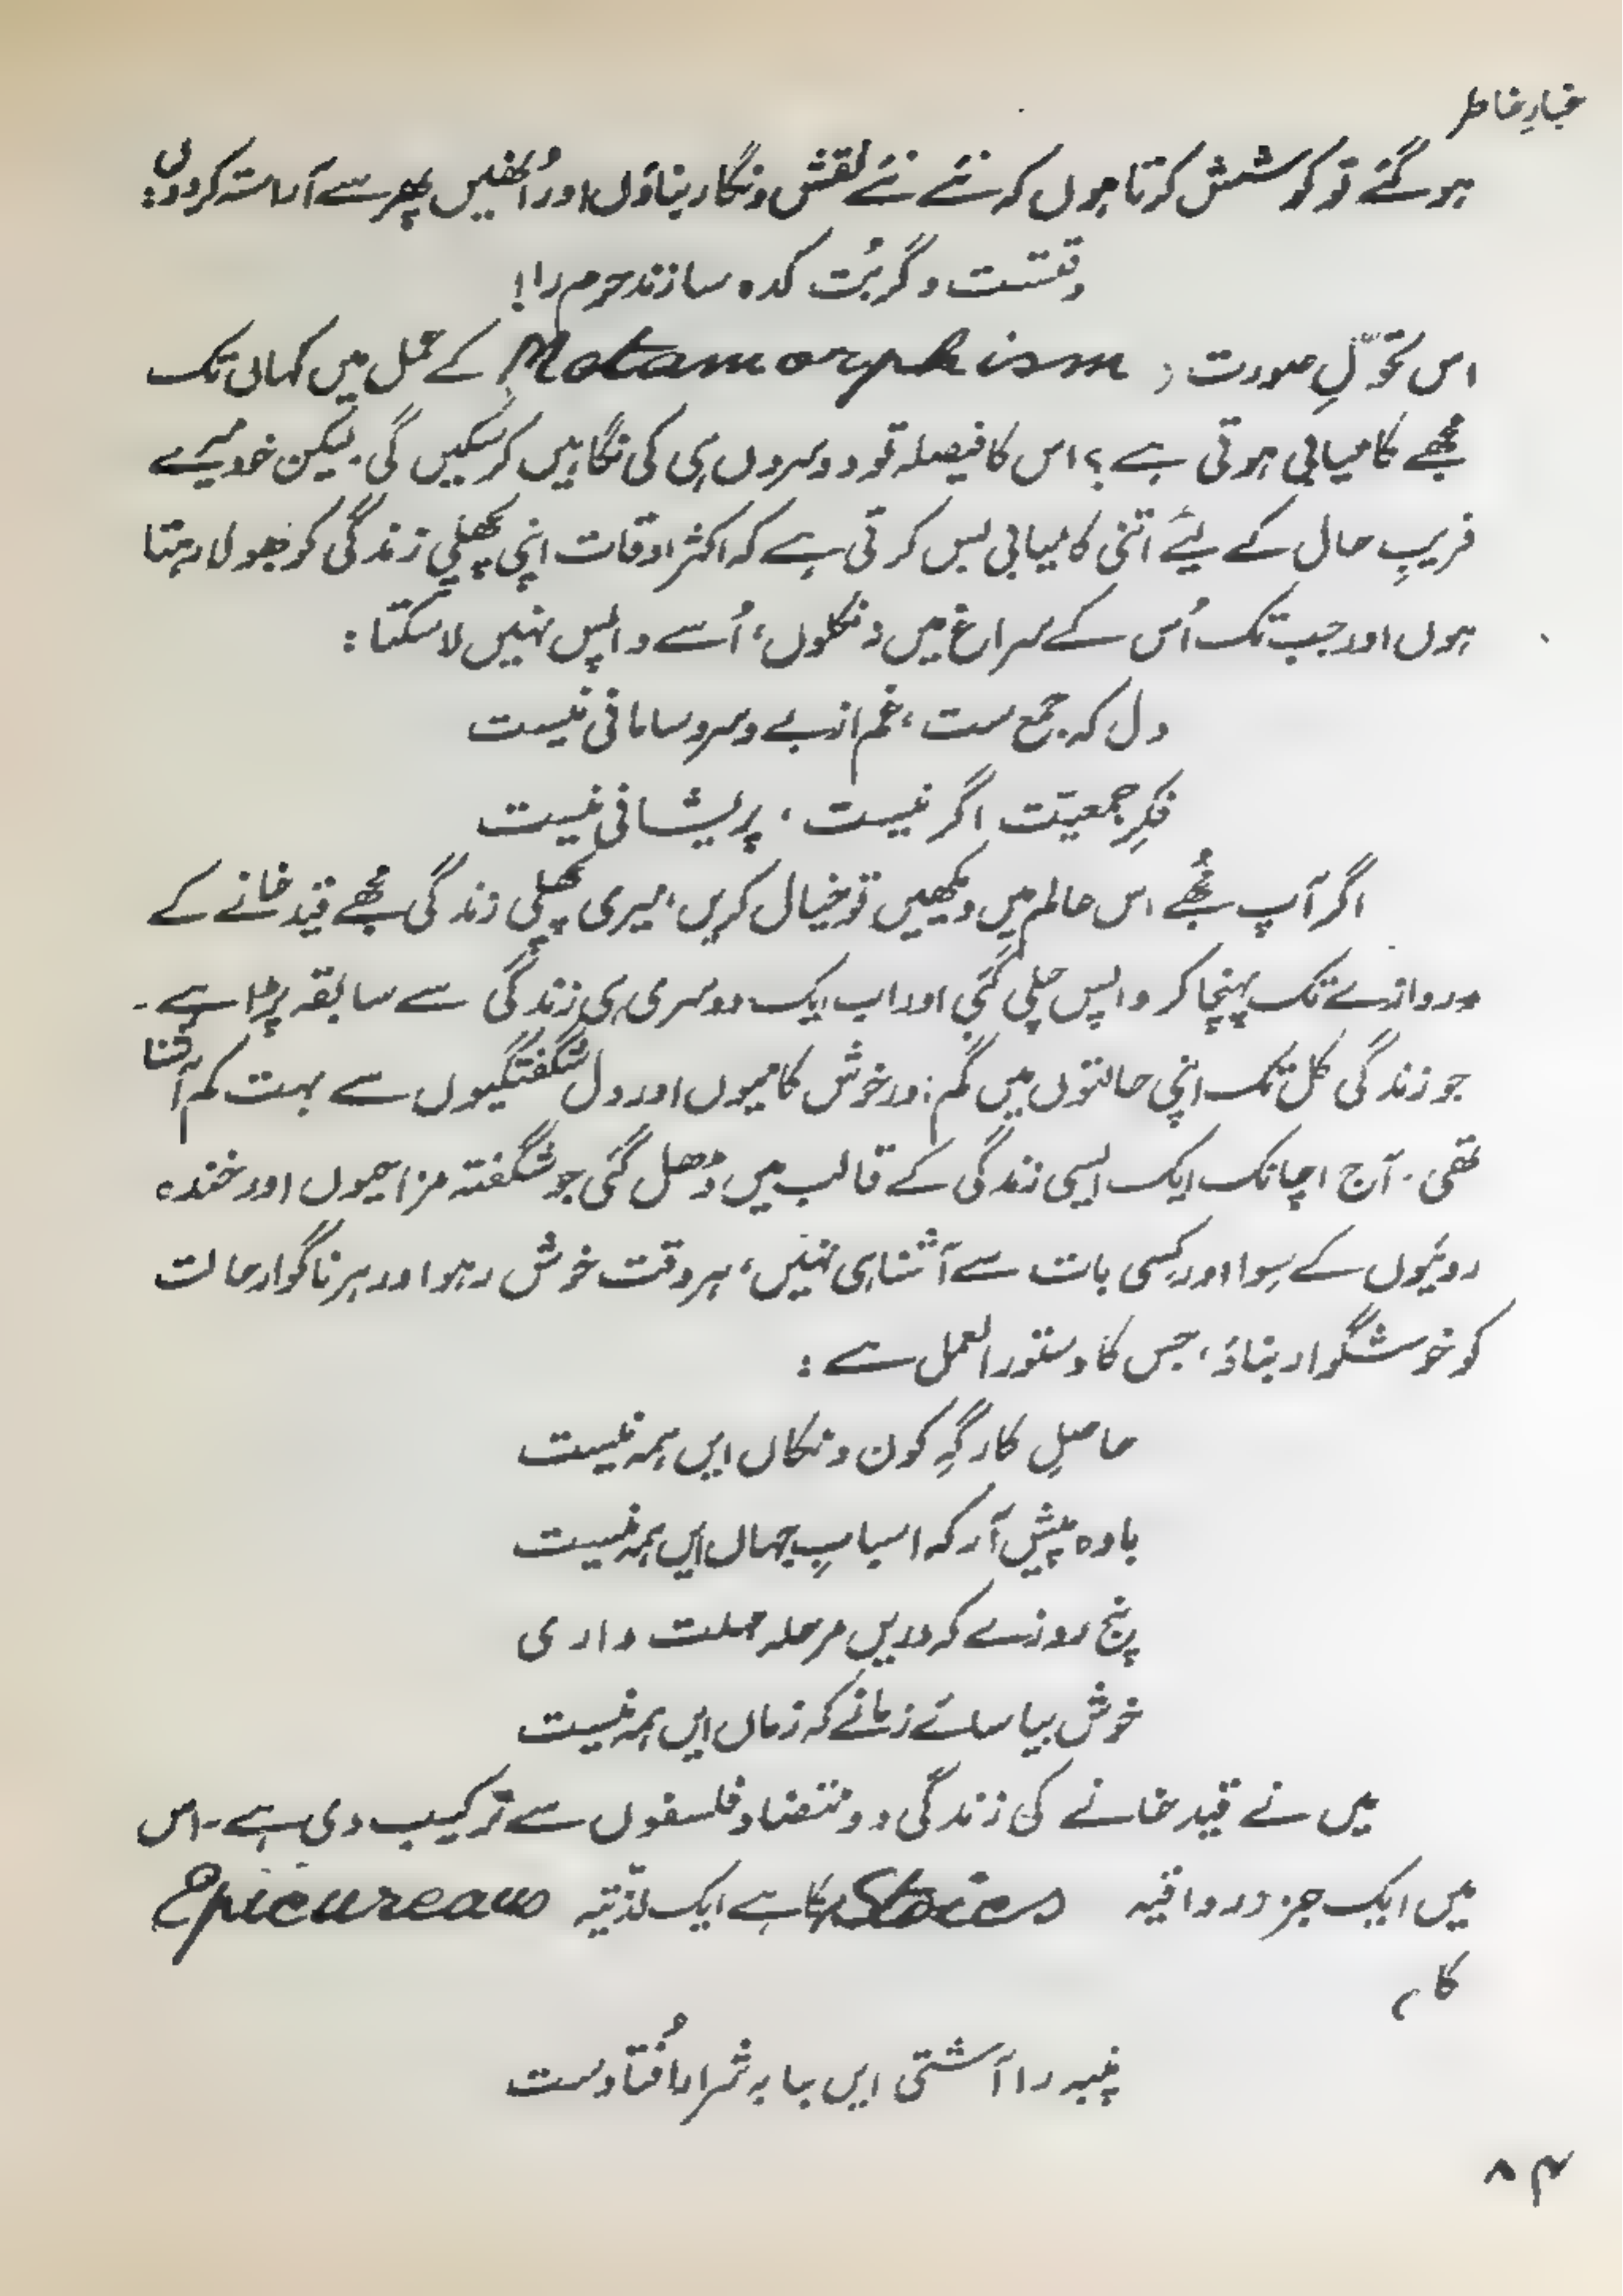 غبارِ خاطر
ہو گئے تو کوشش کرتا ہوں کہ نئے نئے نقش و نگار بناؤں اور اُنھیں پھر سے آراستہ کر دوں:
وقتست دگر بُت کدہ سازند حرم را!
اس تحوّلِ صورت (Metamorphism کے عمل میں کہاں تک
مجھے کامیابی ہوتی ہے؟ اس کا فیصلہ تو دوسروں ہی کی نگاہیں کر سکیں گی. لیکن خود میرے
فریبِ حال کے لیے اتنی کامیابی بس کرتی ہے کہ اکثر اوقات اپنی پچھلی زندگی کو بھولا رہتا
ہوں اور جب تک اُس کے سراغ میں نہ نکلوں، اُسے واپس نہیں لا سکتا:
دل کہ جمع ست، غم از بے و سر و سامانی نیست
فکرِ جمعیّت اگر نیست، پریشانی نیست
اگر آپ مجھُے اس عالم میں دیکھیں تو خیال کریں، میری پچھلی زندگی مجھے قید خانے کے
دروازے تک پہنچا کر واپس چلی گئی اور اب ایک دوسری ہی زندگی سے سابقہ پڑا ہے۔
جو زندگی کل تک اپنی حالتوں میں گم اور خوش کامیوں اور دل شگفتگیوں سے بہت کم آشنا
تھی. آج اچانک ایک ایسی زندگی کے قالب میں ڈھل گئی جو شگفتہ مزاجیوں اور خندہ
روئیوں کے سِوا اور کسی بات سے آشنا ہی نہیں، ہر وقت خوش رہو اور ہر ناگوار حالت
کو خوشگوار بناؤ، جس کا دستور العمل ہے:
حاصلِ کارگہِ کون و مکاں ایں ہمہ نیست
بادہ پیش آر کہ اسبابِ جہاں ایں ہمہ نیست
پنج روزے کہ دریں مرحلہ مہلت داری
خوش بیاسائے زمانے کہ زماں ایں ہمہ نیست
میں نے قید خانے کی زندگی دو متضاد فلسفوں سے ترکیب دی ہے۔ اس
میں ایک جز رواقیہ Stoics کا ہے ایک لذّتیہ Epicureaus
کا،
پنبہ را آشتی ایں جا بہ شرار اُفتادست
۸۴